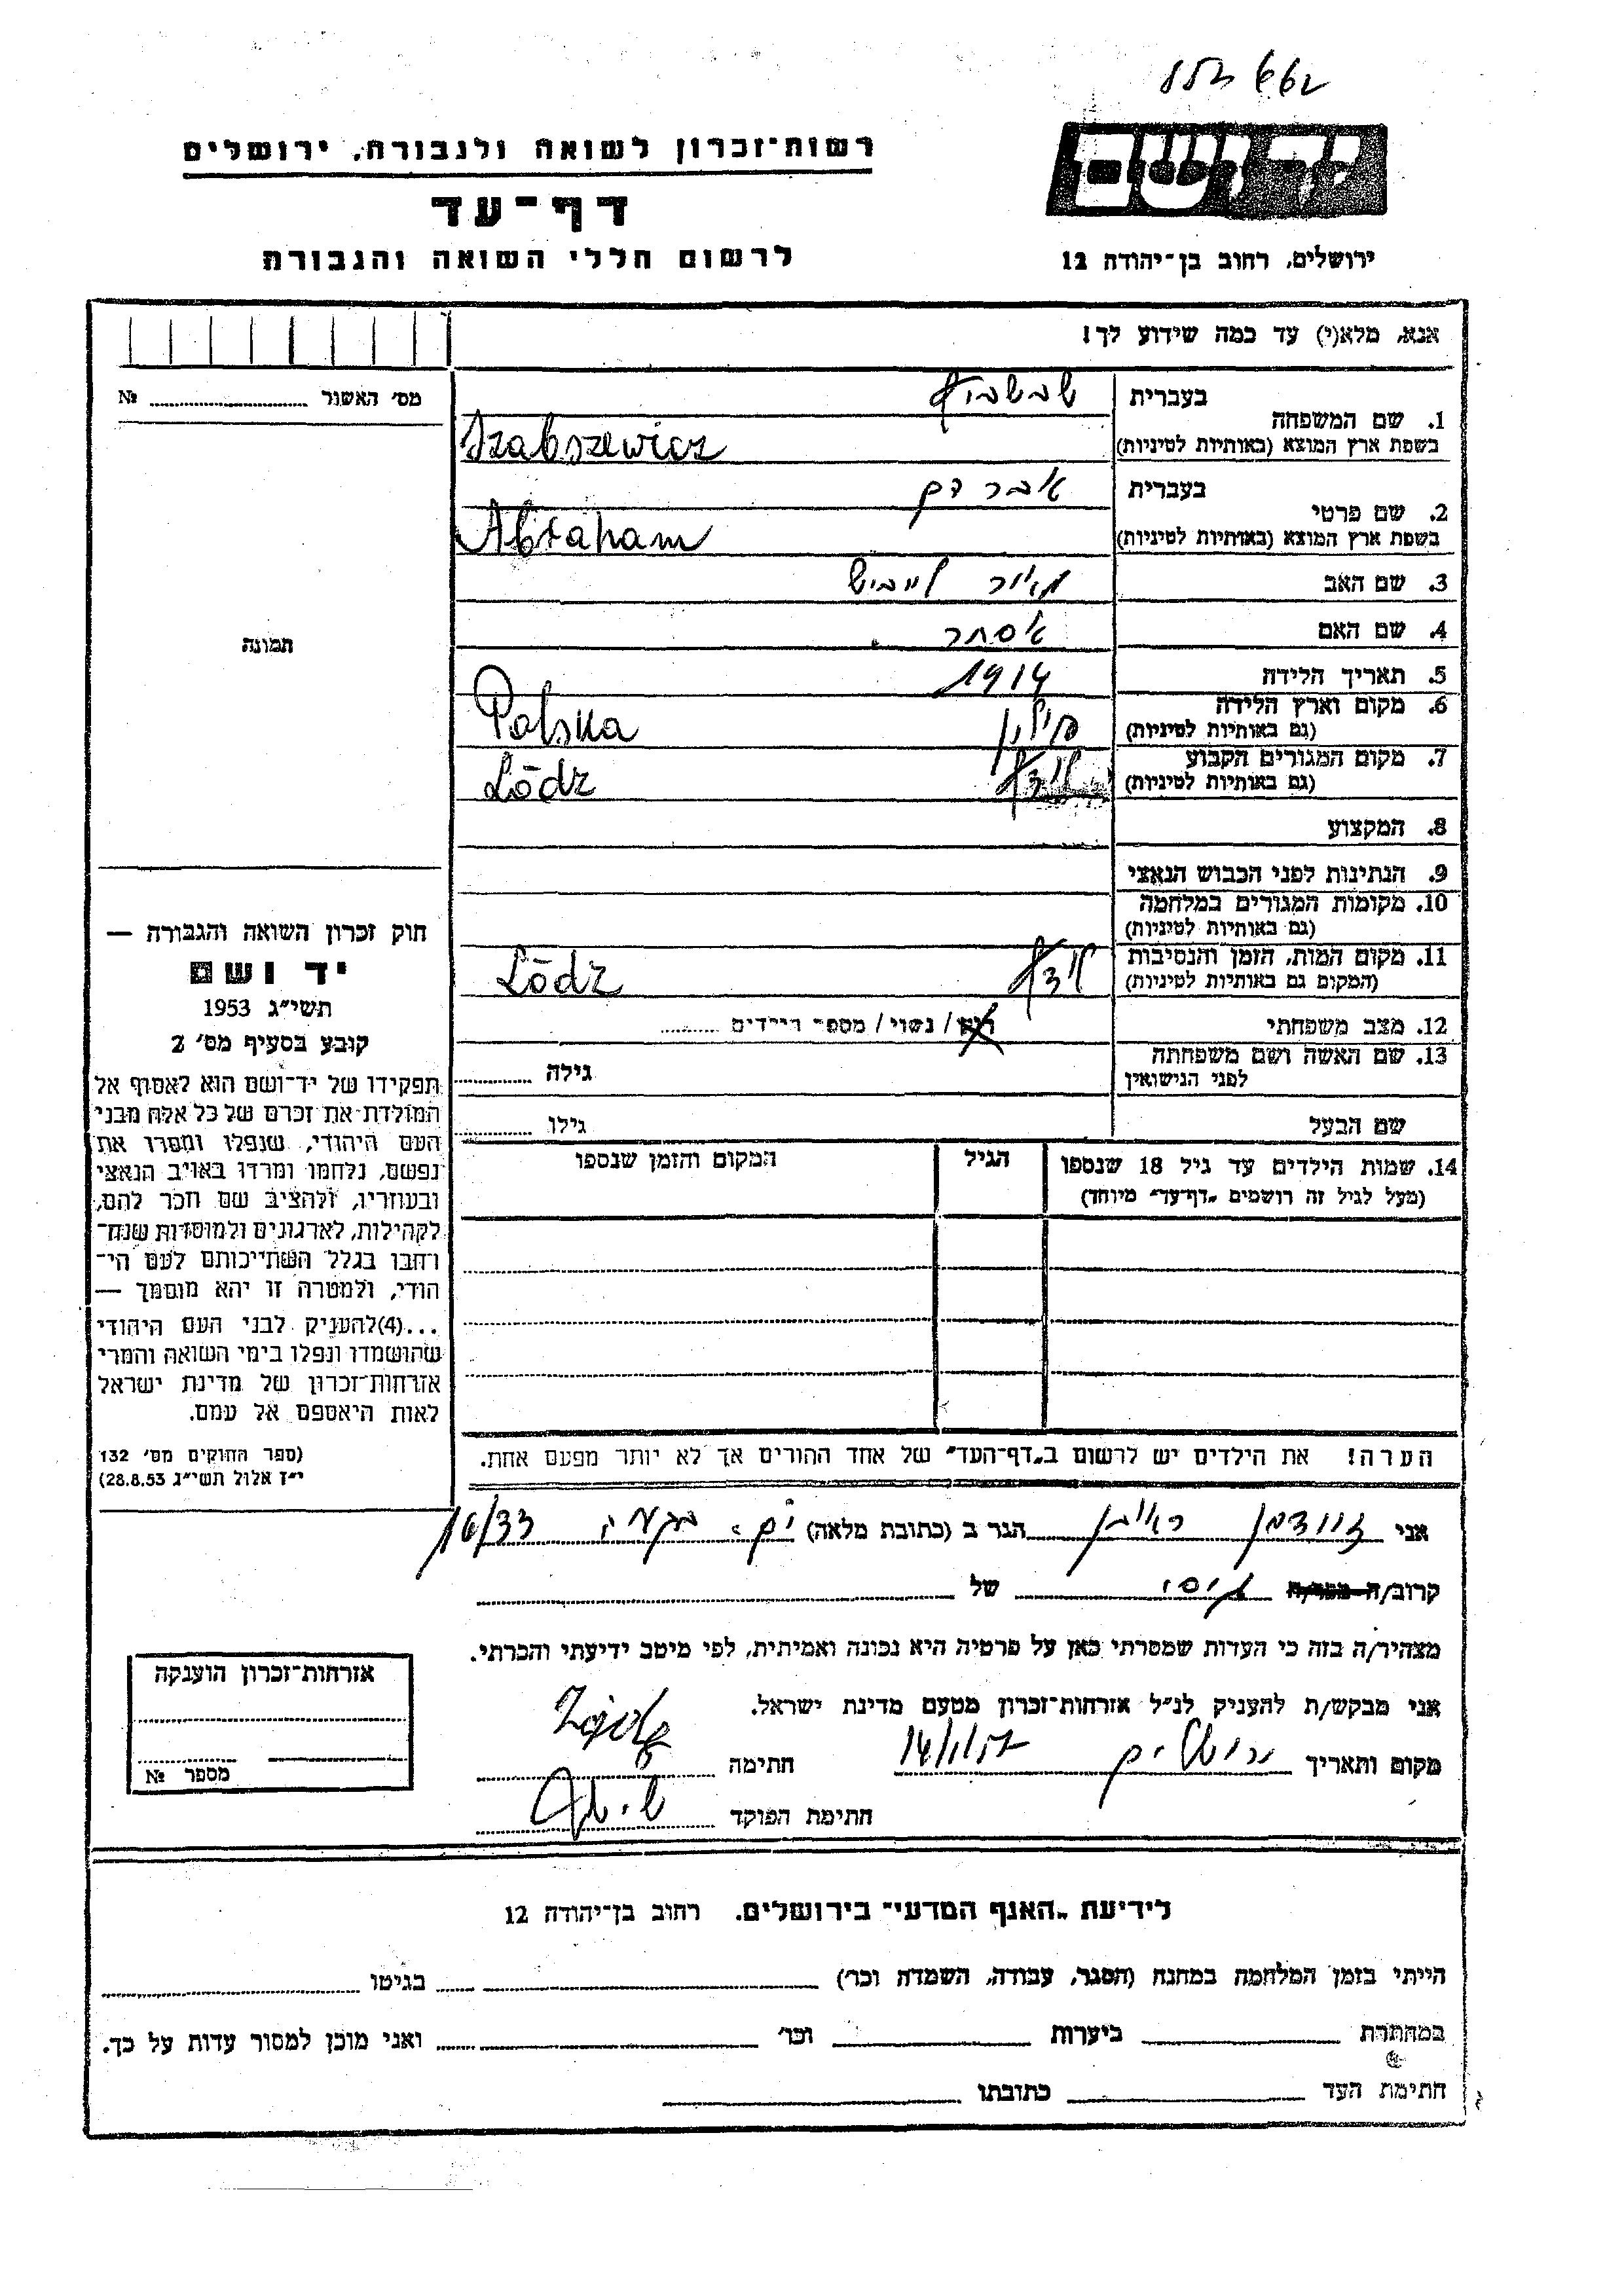 רשות־זכרון לשואה ולגבורה, ירושלים
דף־עד
לרשום חללי השואה והגבורה
יד ושם
ירושלים, רחוב בן־יהודה 12
אנא, מלא(י) עד כמה שידוע לך!
מס׳ האשור № 
בעברית
1. שם המשפחה
בשפת ארץ המוצא (באותיות לטיניות)
Szabszewicz
בעברית אברהם
2. שם פרטי
בשפת ארץ המוצא (באותיות לטיניות)
Abraham
3. שם האב מאיר לייביש
4. שם האם אסתר
5. תאריך הלידה 1914
6. מקום וארץ הלידה
(גם באותיות לטיניות) פולין Polska
7. מקום המגורים הקבוע
(גם באותיות לטיניות) לודז׳ Lódz
8. המקצוע
9. הנתינות לפני הכבוש הנאצי
10. מקומות המגורים במלחמה
(גם באותיות לטיניות)
11. מקום המות, הזמן והנסיבות
(המקום גם באותיות לטיניות) לודז׳ Lódz
12. מצב משפחתי רוק / נשוי / מספר הילדים
13. שם האשה ושם משפחתה
לפני הנישואין גילה
שם הבעל גילו
14. שמות הילדים עד גיל 18 שנספו
(מעל לגיל זה רושמים „דף־עד״ מיוחד)
הגיל
המקום והזמן שנספו
תמונה
חוק זכרון השואה והגבורה —
יד ושם
תשי״ג 1953
קובע בסעיף מס׳ 2
תפקידו של יד־ושם הוא לאסוף אל
המולדת את זכרם של כל אלה מבני
העם היהודי, שנפלו ומסרו את
נפשם, נלחמו ומרדו באויב הנאצי
ובעוזריו, ולהציב שם וזכר להם,
לקהילות, לארגונים ולמוסדות שנח־
רחבו בגלל השתייכותם לעם הי־
הודי, ולמטרה זו יהא מוסמך —
...(4)להעניק לבני העם היהודי
שהושמדו ונפלו בימי השואה והמרי
אזרחות־זכרון של מדינת ישראל
לאות היאספם אל עמם.
(ספר החוקים מס׳ 132
י״ז אלול תשי״ג 28.8.53)
הערה! את הילדים יש לרשום ב„דף־העד״ של אחד ההורים אך לא יותר מפעם אחת.
אני ראובן הגר ב (כתובת מלאה) 16/33
קרוב/ה מכר/ה גיסו של
מצהיר/ה בזה כי העדות שמסרתי כאן על פרטיה היא נכונה ואמיתית, לפי מיטב ידיעתי והכרתי.
אני מבקש/ת להעניק לנ״ל אזרחות־זכרון מטעם מדינת ישראל.
מקום ותאריך ירושלים חתימה
חתימת הפוקד
אזרחות־זכרון הוענקה
מספר №
לידיעת „האגף המדעי״ בירושלים. רחוב בן־יהודה 12
הייתי בזמן המלחמה במחנה (הסגר, עבודה, השמדה וכר׳) בגיטו
במחתרת ביערות וכר׳ ואני מוכן למסור עדות על כך.
חתימת העד כתובתו